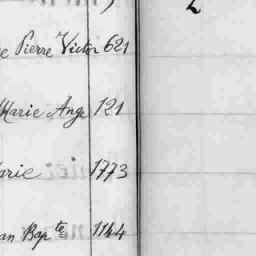 Pierre Victor 621
Marie Ange 121
arie 1773
an Bap te 1144